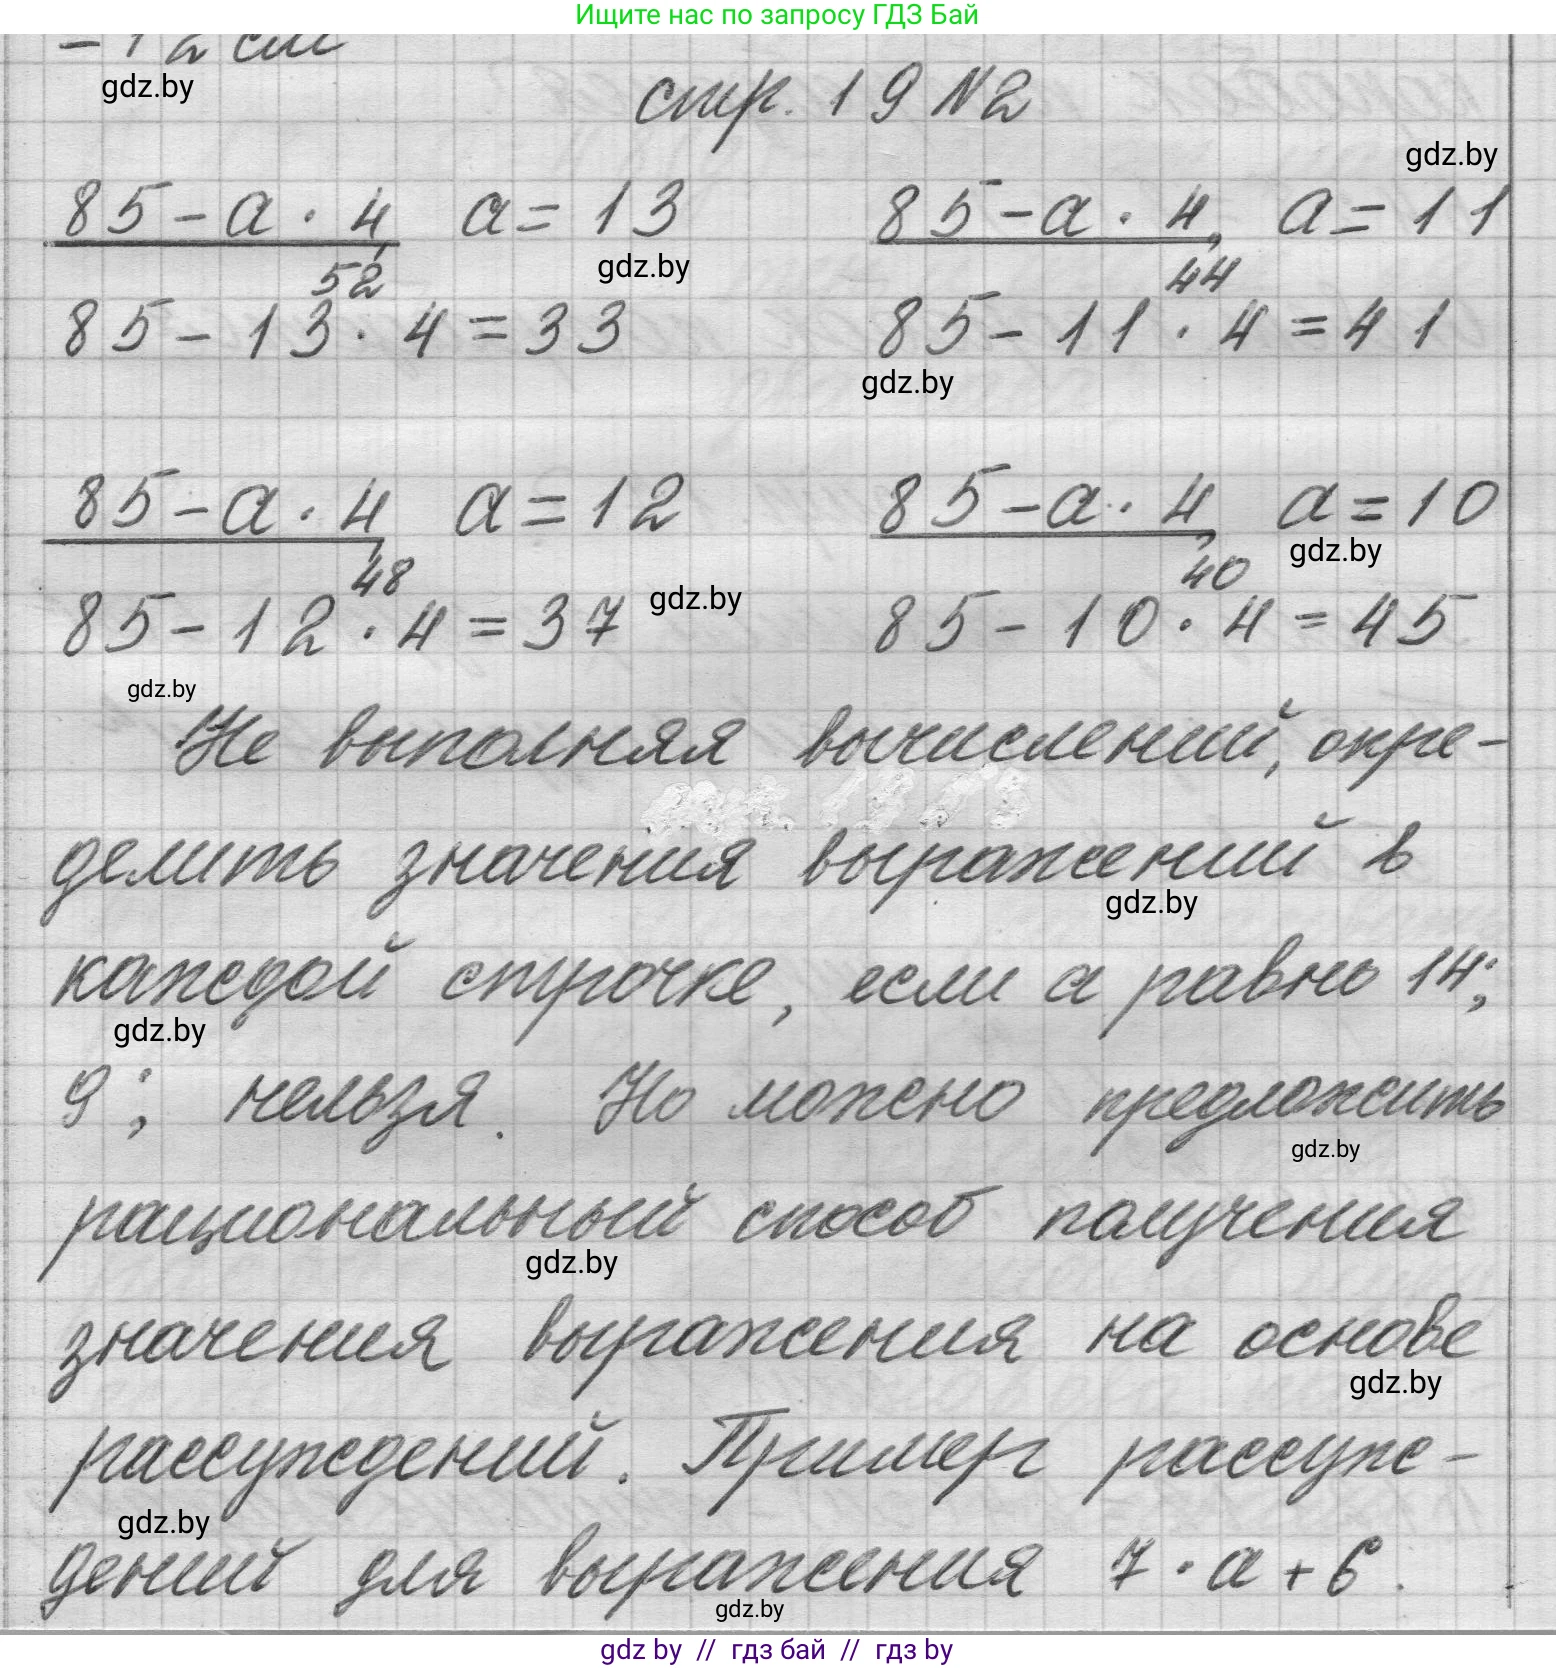 Ищите нас по запросу ГДЗ Бай
- 12 см
gdz.by
стр. 19 №2
gdz.by
85 - а · 4 а = 13 85 - а · 4, а = 11
gdz.by
52 44
85 - 13 · 4 = 33 85 - 11 · 4 = 41
gdz.by
85 - а · 4 а = 12 85 - а · 4, а = 10
gdz.by
48 40
gdz.by
85 - 12 · 4 = 37 85 - 10 · 4 = 45
gdz.by
Не выполняя вычислений, опре-
делить значения выражений в
gdz.by
каждой строчке, если а равно 14;
gdz.by
9; нельзя. Но можно предложить
gdz.by
рациональный способ получения
gdz.by
значения выражения на основе
gdz.by
рассуждений. Пример рассуж-
gdz.by
дений для выражения 7 · а + 6.
gdz.by
gdz by // гдз бай // гдз by